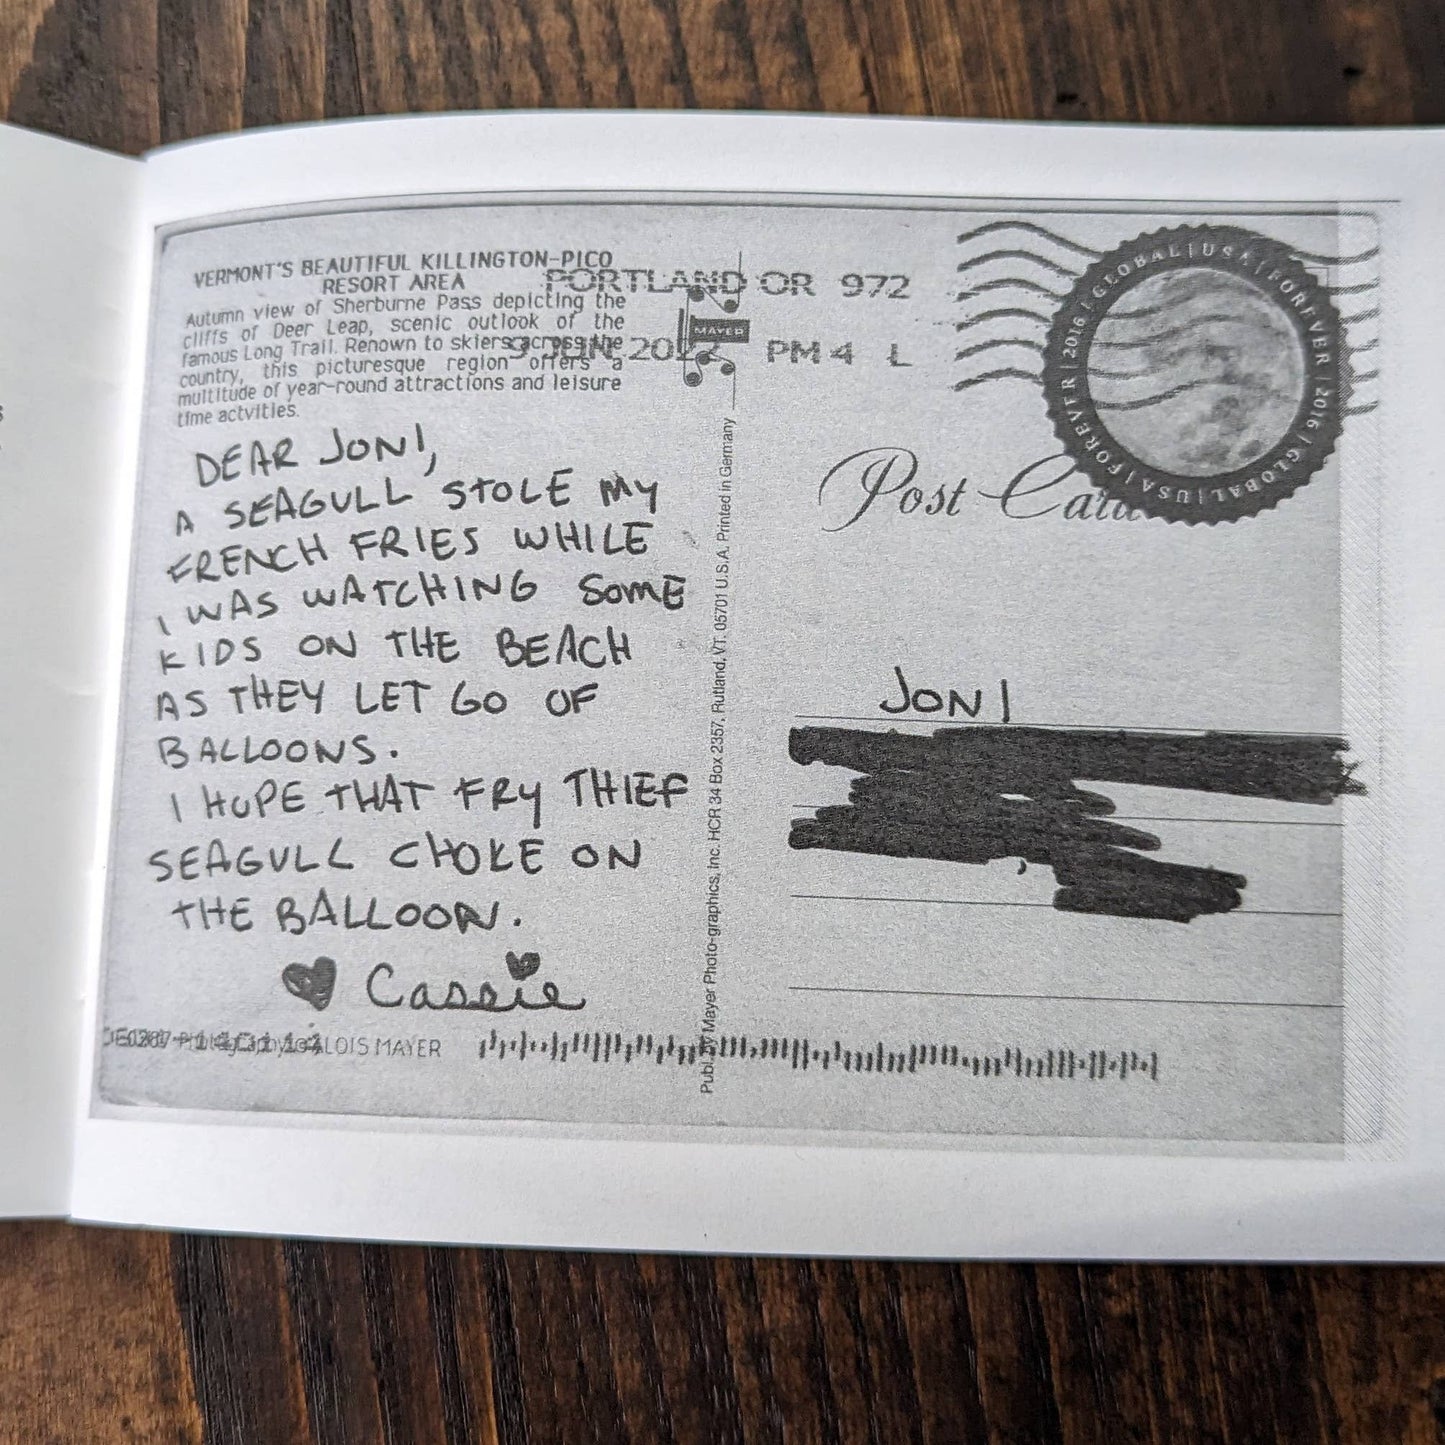 VERMONT'S BEAUTIFUL KILLINGTON-PICO
RESORT AREA
Autumn view of Sherburne Pass depicting the
cliffs of Deer Leap, scenic outlook of the
famous Long Trail. Renown to skiers across the
country, this picturesque region offers a
multitude of year-round attractions and leisure
time actvities.
PORTLAND OR 972
JUN 202 PM 4 L
MAYER
GLOBAL | USA | FOREVER | 2016 | GLOBAL | USA | FOREVER | 2016 |
Post Card
DEAR JONI,
A SEAGULL STOLE MY
FRENCH FRIES WHILE
I WAS WATCHING SOME
KIDS ON THE BEACH
AS THEY LET GO OF
BALLOONS.
I HOPE THAT FRY THIEF
SEAGULL CHOKE ON
THE BALLOON.
♥ Cassie
ALOIS MAYER
Publ. by Mayer Photo-graphics, Inc. HCR 34 Box 2357, Rutland, VT. 05701 U.S.A. Printed in Germany
JONI